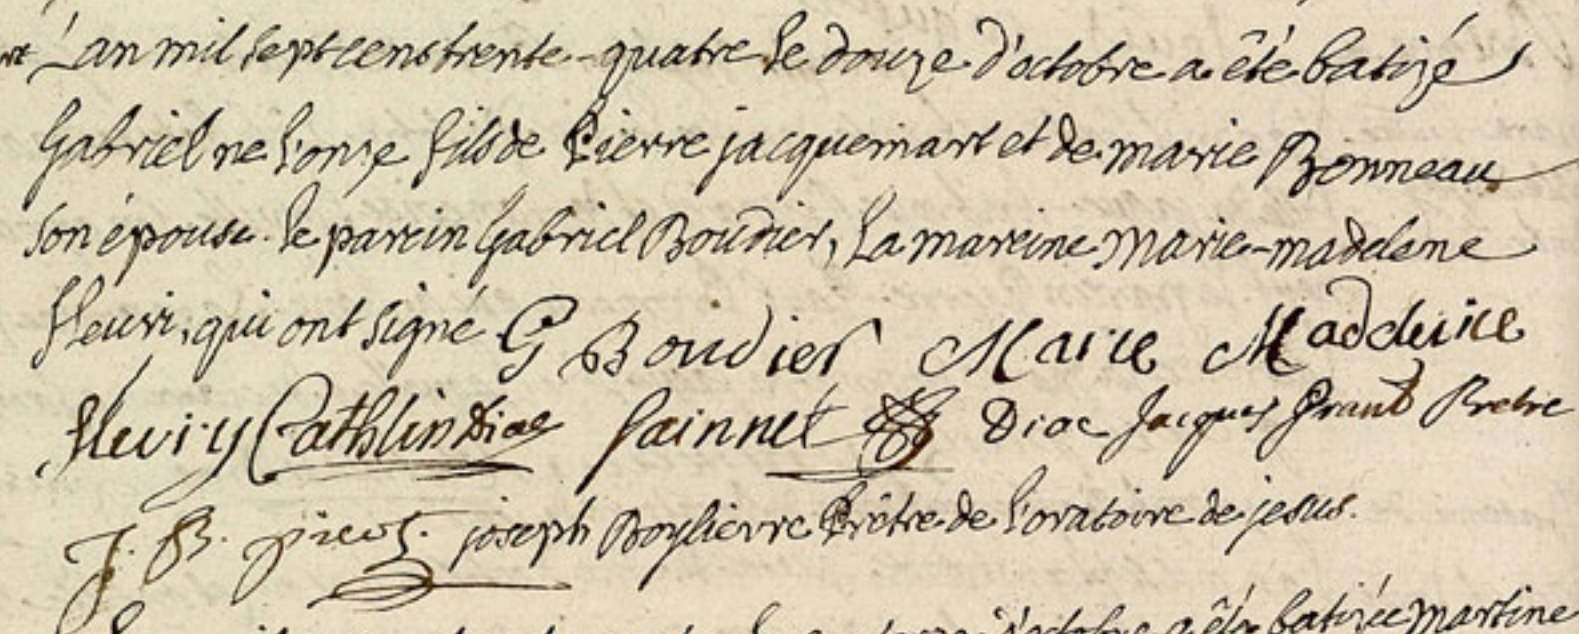 L'an mil sept cens trente-quatre le douze d'octobre a êté batizé
Gabriel ne l'onze fils de Pierre jacquemart et de marie Bonneau
son épouse. le parein Gabriel Boudier, La mareine Marie-madelene
fleuri, qui ont signé G Boudier Marie Madeleine
fleviry Cathlin Diac Sainnet Diac Jacques Prestre
J. B. joseph Prêtre de l'oratoire de jesus.
d'octobre a êté batizée martine